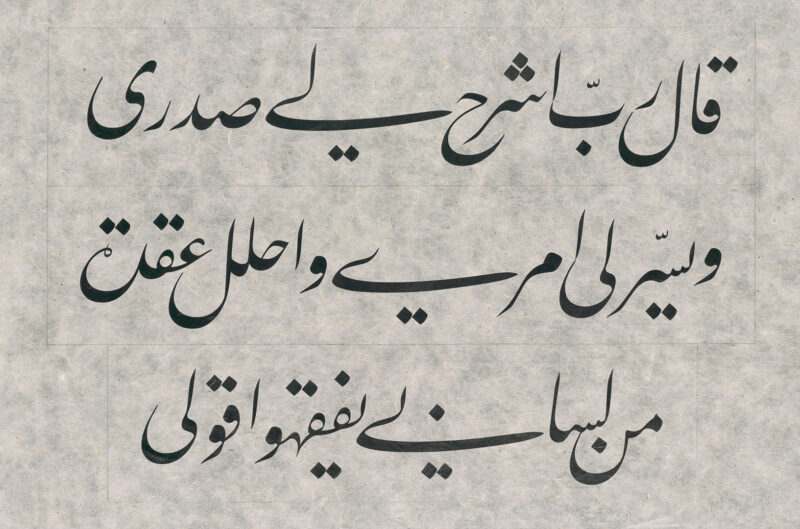 قال ربّ اشرح لي صدری
ویسّر لی امري واحلل عقدة
من لساني یفقهوا قولی